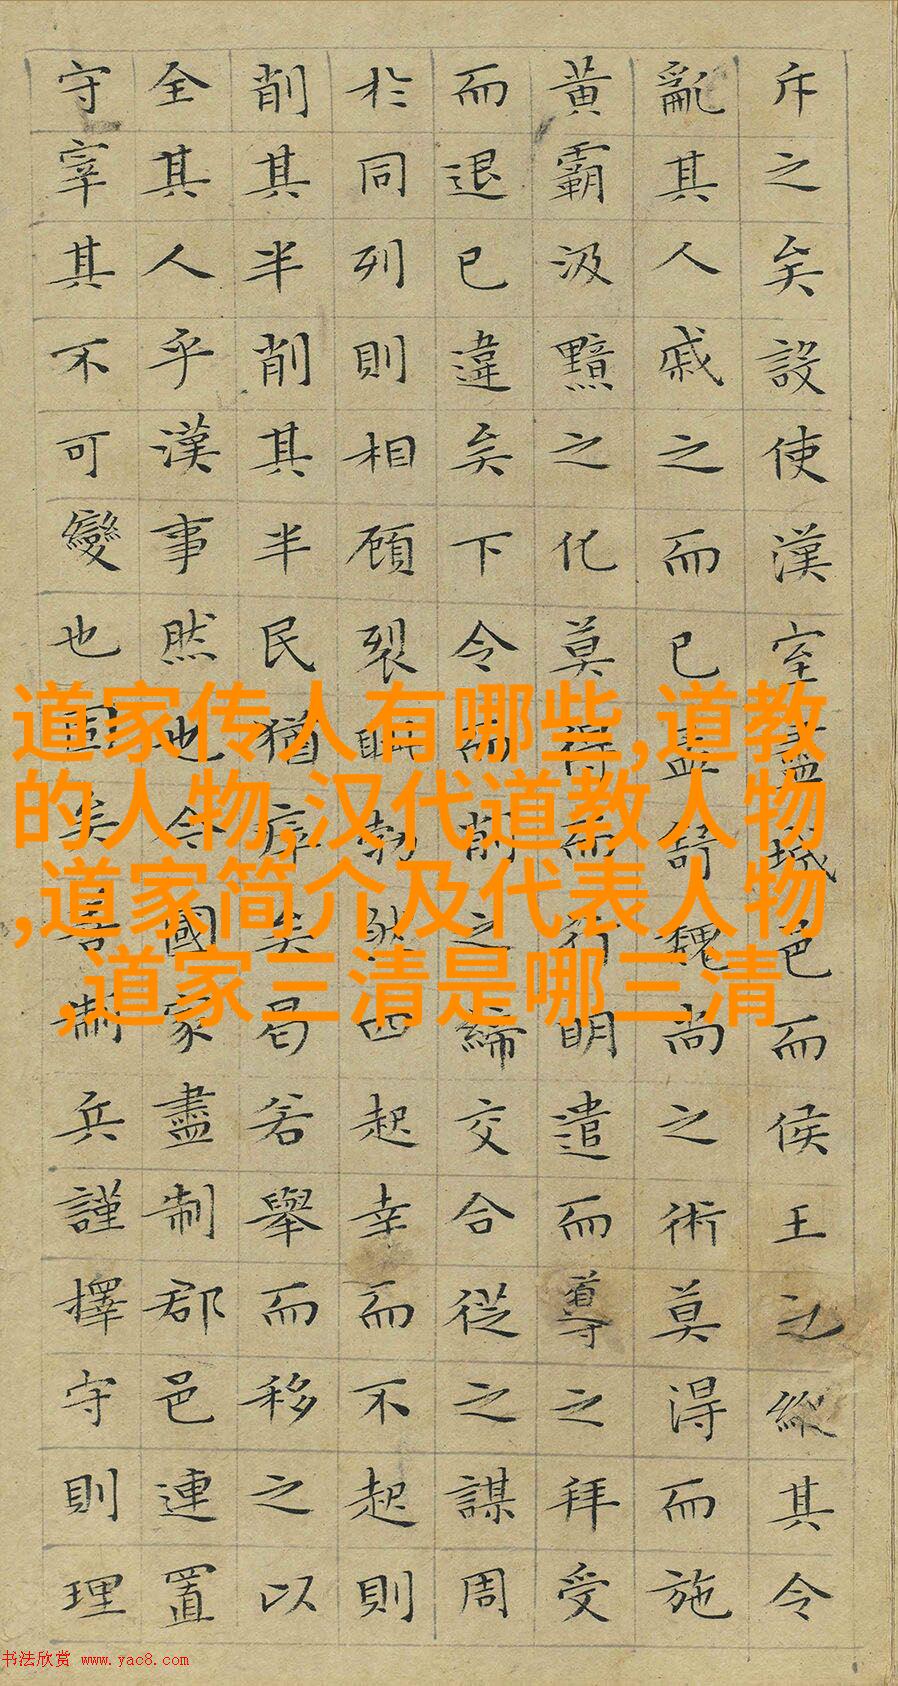 斥之矣設使漢室盡城邑而侯王之縱其令
亂其人戚之而已孟舒魏尚之術莫得而施
黃霸汲黯之化莫得而行明遣而導之拜受
而退已違矣下令而削之締交合從之謀周
於同列則相顧裂眦勃然四起幸而不起則
削其半削其半民猶瘁矣曷若舉而移之以
全其人乎漢事然也今國家盡制郡邑連置
守宰其不可變也固矣善制兵謹擇守則理
道家传人有哪些,道教
的人物,汉代道教人物
,道家简介及代表人物
,道家三清是哪三清
书法欣赏 www.yac8.com